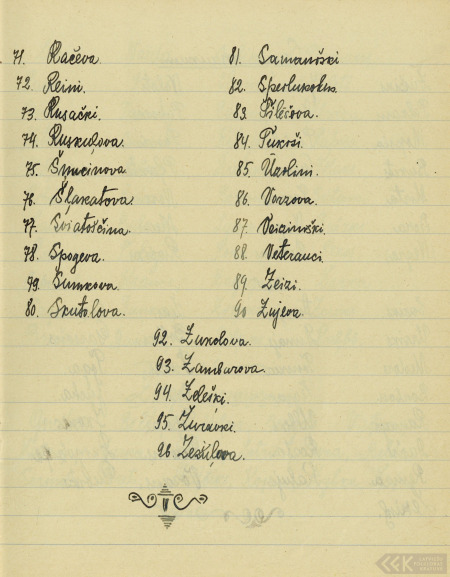 71. Račeva.
72. Reini.
73. Rusački.
74. Ruskuļova.
75. Šņucinova.
76. Šļakatova.
77. Sviatoščina.
78. Spogeva.
79. Sumkova.
80. Skutolova.
81. Samanīški
82.
83. Šileišova.
84. Tukuši.
85. Ūzoliņi.
86. Vorzova.
87. Veiciniški.
88. Veterauci.
89. Zeizi.
90 Zujeva.
92. Zukolova.
93. Zamburova.
94. Zdeški.
95. Zurauski.
96 Zezkiļova.